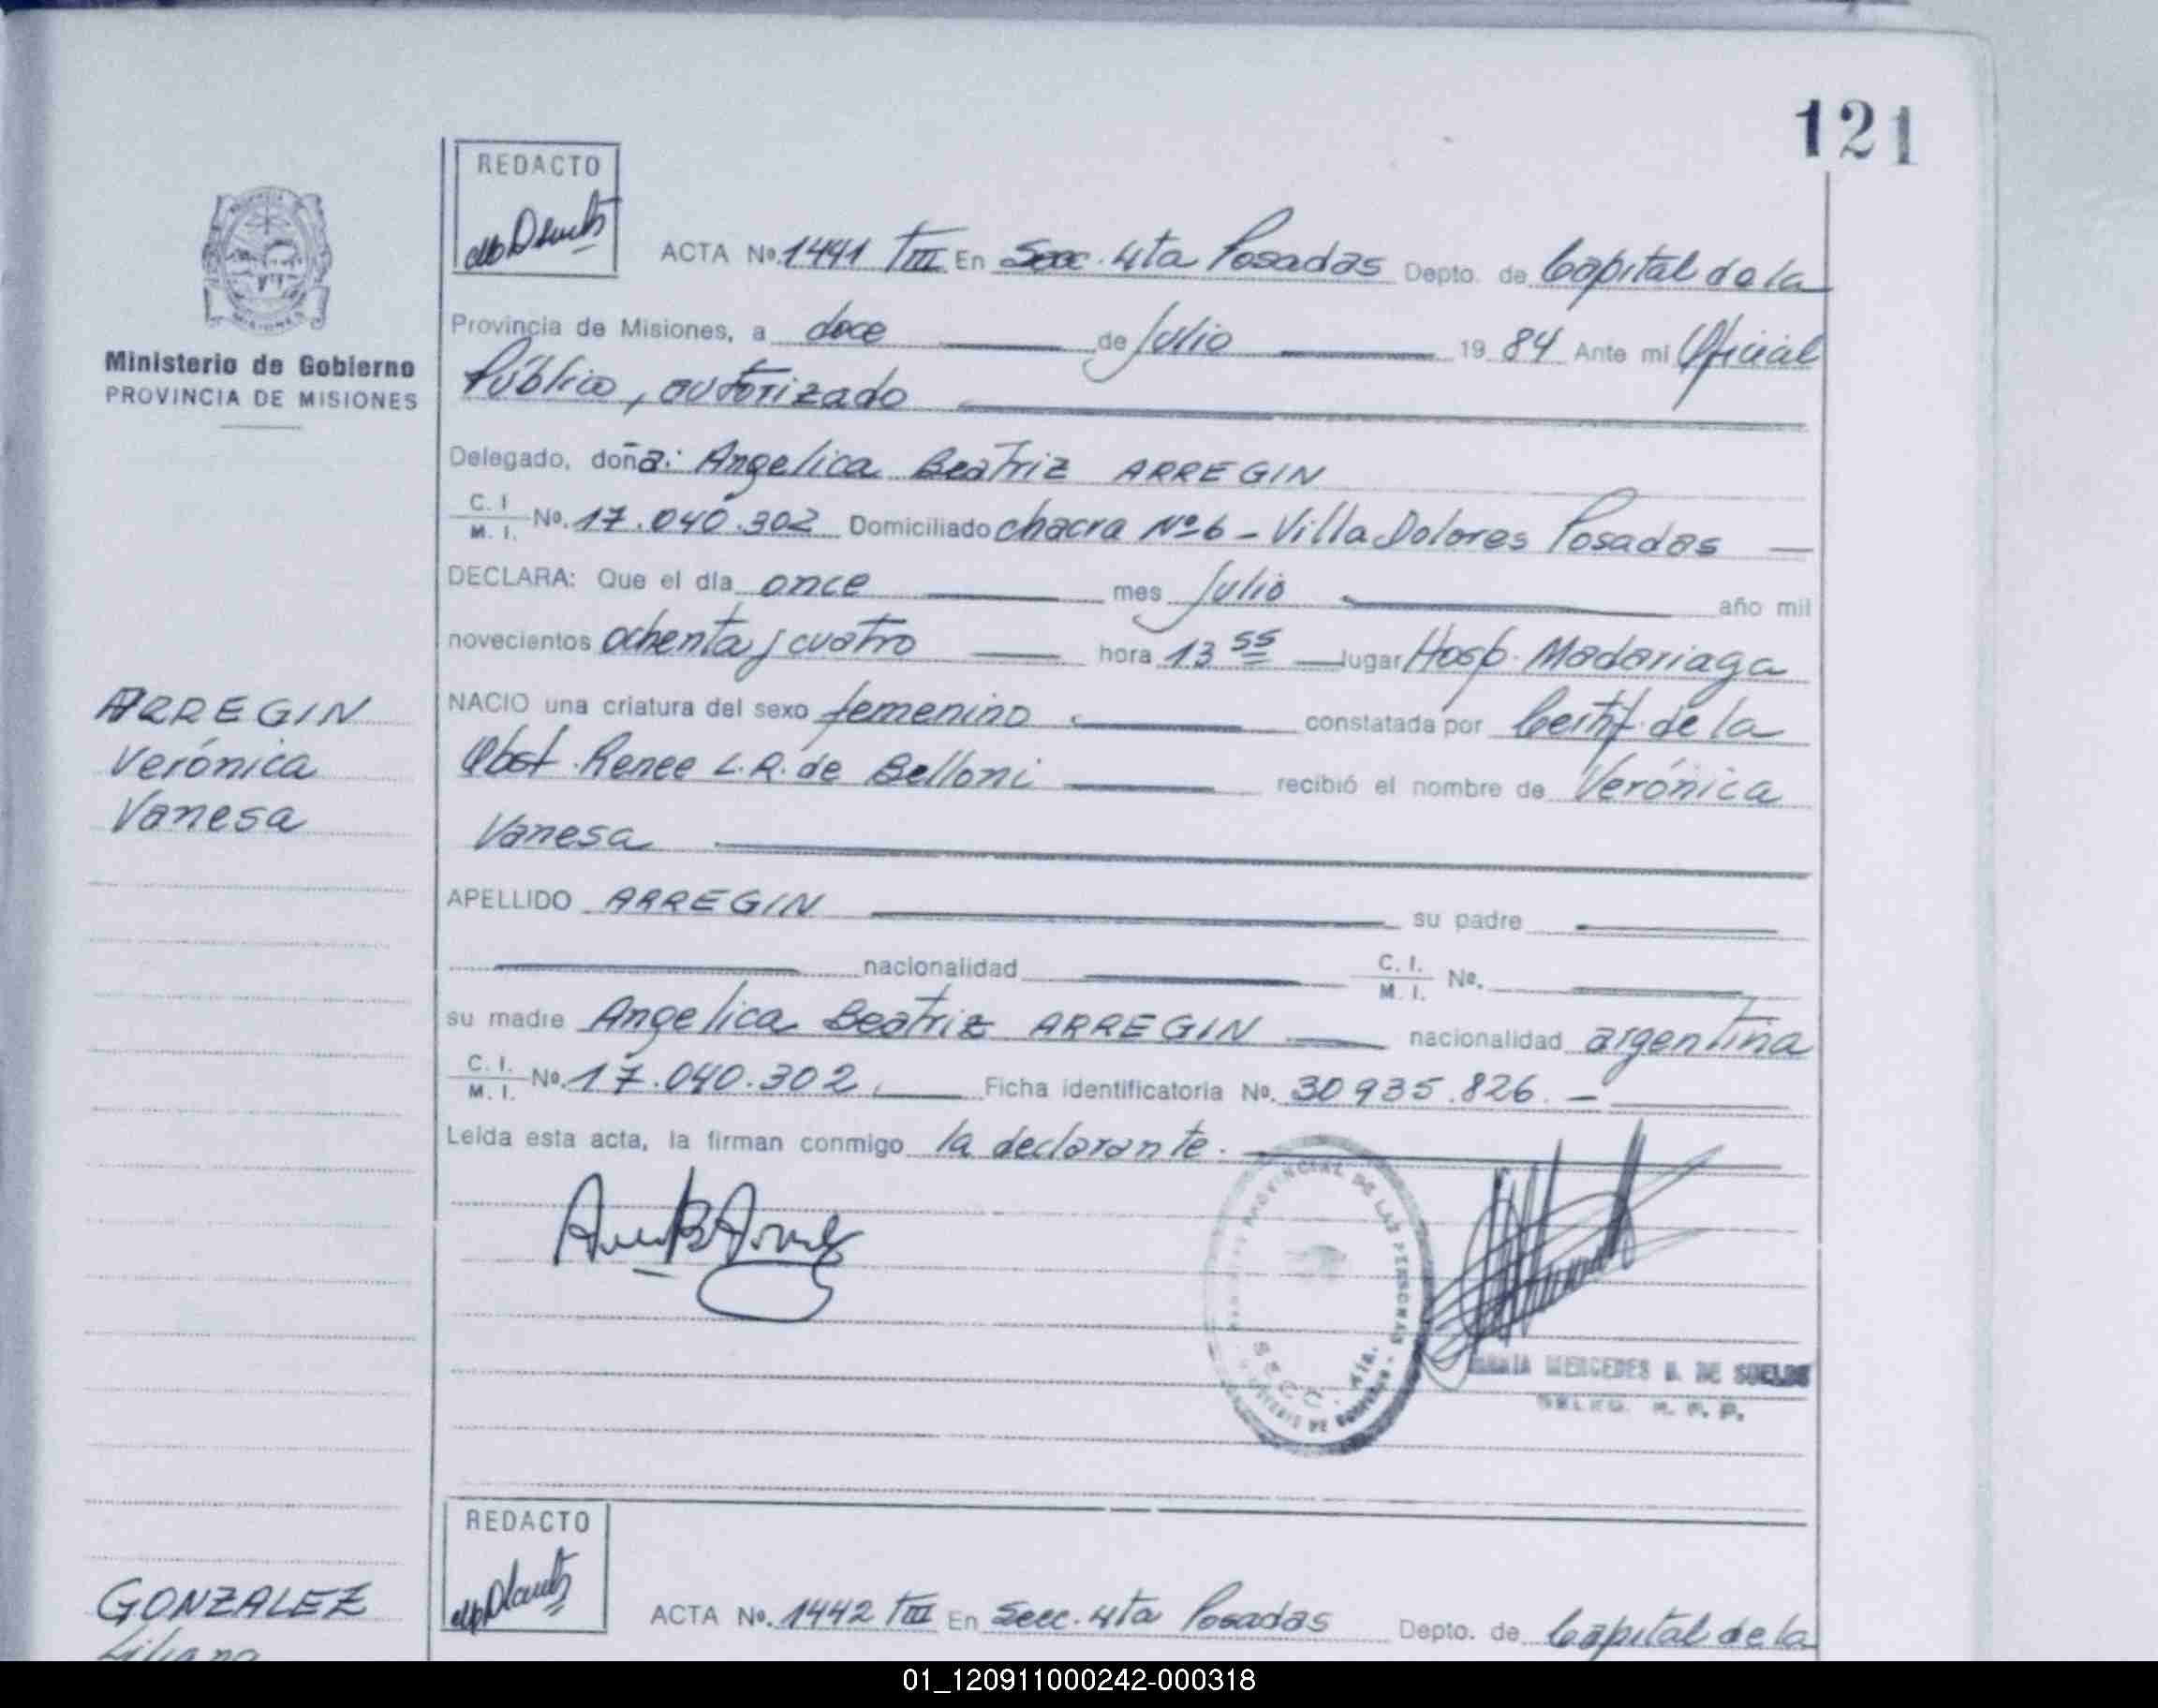 121
REDACTO
ACTA No. 1441 TIII En Secc. 4ta Posadas Depto. de Capital de la
Provincia de Misiones, a doce de Julio 1984 Ante mi Oficial
Público, autorizado
Ministerio de Gobierno
PROVINCIA DE MISIONES
Delegado, doña: Angelica Beatriz ARREGIN
C. I. M. I. No. 17.040.302 Domiciliado chacra Nº 6 - Villa Dolores Posadas —
DECLARA: Que el día once mes Julio año mil
novecientos ochenta y cuatro hora 13 55 lugar Hosp. Madariaga
ARREGIN
Verónica
Vanesa
NACIO una criatura del sexo femenino constatada por Certif. de la
Obst. Renee L.R. de Belloni recibió el nombre de Verónica
Vanesa
APELLIDO ARREGIN su padre
nacionalidad C. I. M. I. No.
su madre Angelica Beatriz ARREGIN nacionalidad argentina
C. I. M. I. No. 17.040.302 Ficha identificatoria No. 30935.826. —
Leída esta acta, la firman conmigo la declarante.
PROVINCIAL DE LAS PERSONAS
SECC. 4ta.
MARIA MERCEDES DE SUELDO
DELEG. R. P. P.
REDACTO
GONZALEZ
Liliana
ACTA No. 1442 TIII En Secc. 4ta Posadas Depto. de Capital de la
01_120911000242-000318